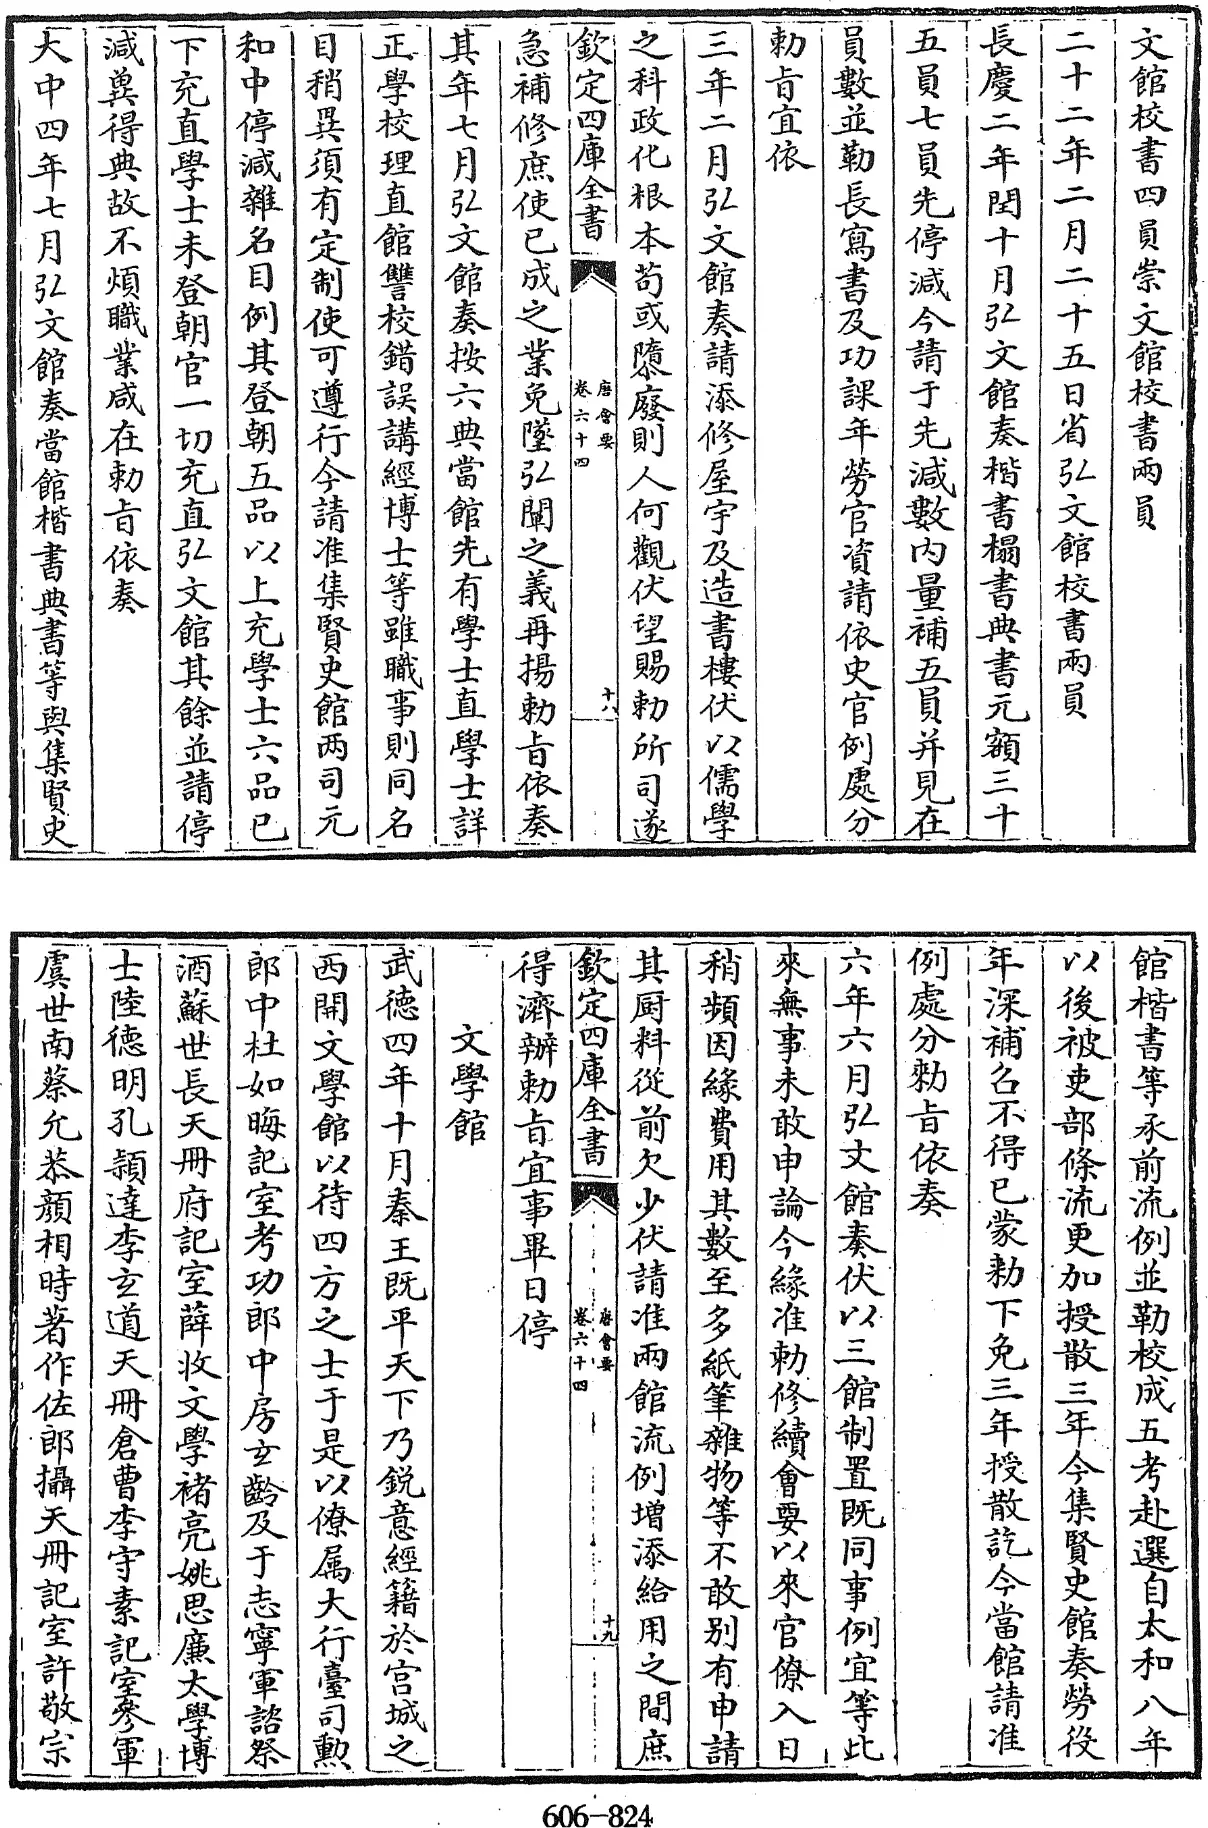 文館校書四員崇文館校書兩員
二十二年二月二十五日省弘文館校書兩員
長慶二年閏十月弘文館奏楷書搨書典書元額三十
五員七員先停減今請于先減數内量補五員并見在
員數並勒長寫書及功課年勞官資請依史官例處分
勅旨宜依
三年二月弘文館奏請添修屋宇及造書樓伏以儒學
之科政化根本苟或隳廢則人何觀伏望賜勅所司遂
欽定四庫全書
唐會要
卷六十四
十八
急補修庶使已成之業免墜弘闡之義再揚勅旨依奏
其年七月弘文館奏按六典當館先有學士直學士詳
正學校理直館讐校錯誤講經博士等雖職事則同名
目稍異須有定制使可遵行今請准集賢史館兩司元
和中停減雜名目例其登朝五品以上充學士六品已
下充直學士未登朝官一切充直弘文館其餘並請停
減冀得典故不煩職業咸在勅旨依奏
大中四年七月弘文館奏當館楷書典書等與集賢史
館楷書等承前流例並勒校成五考赴選自太和八年
以後被吏部條流更加授散三年今集賢史館奏勞役
年深補召不得已蒙勅下免三年授散訖今當館請准
例處分勅旨依奏
六年六月弘文館奏伏以三館制置既同事例宜等此
來無事未敢申論今緣准勅修續會要以來官僚入日
稍頻因緣費用其數至多紙筆雜物等不敢别有申請
其厨料從前欠少伏請准兩館流例增添給用之間庶
欽定四庫全書
唐會要
卷六十四
十九
得濟辦勅旨宜事畢日停
文學館
武德四年十月秦王既平天下乃鋭意經籍於宫城之
西開文學館以待四方之士于是以僚屬大行臺司勲
郎中杜如晦記室考功郎中房玄齡及于志寧軍諮祭
酒蘇世長天册府記室薛收文學褚亮姚思廉太學博
士陸德明孔頴達李玄道天册倉曹李守素記室參軍
虞世南蔡允恭顔相時著作佐郎攝天册記室許敬宗
606-824